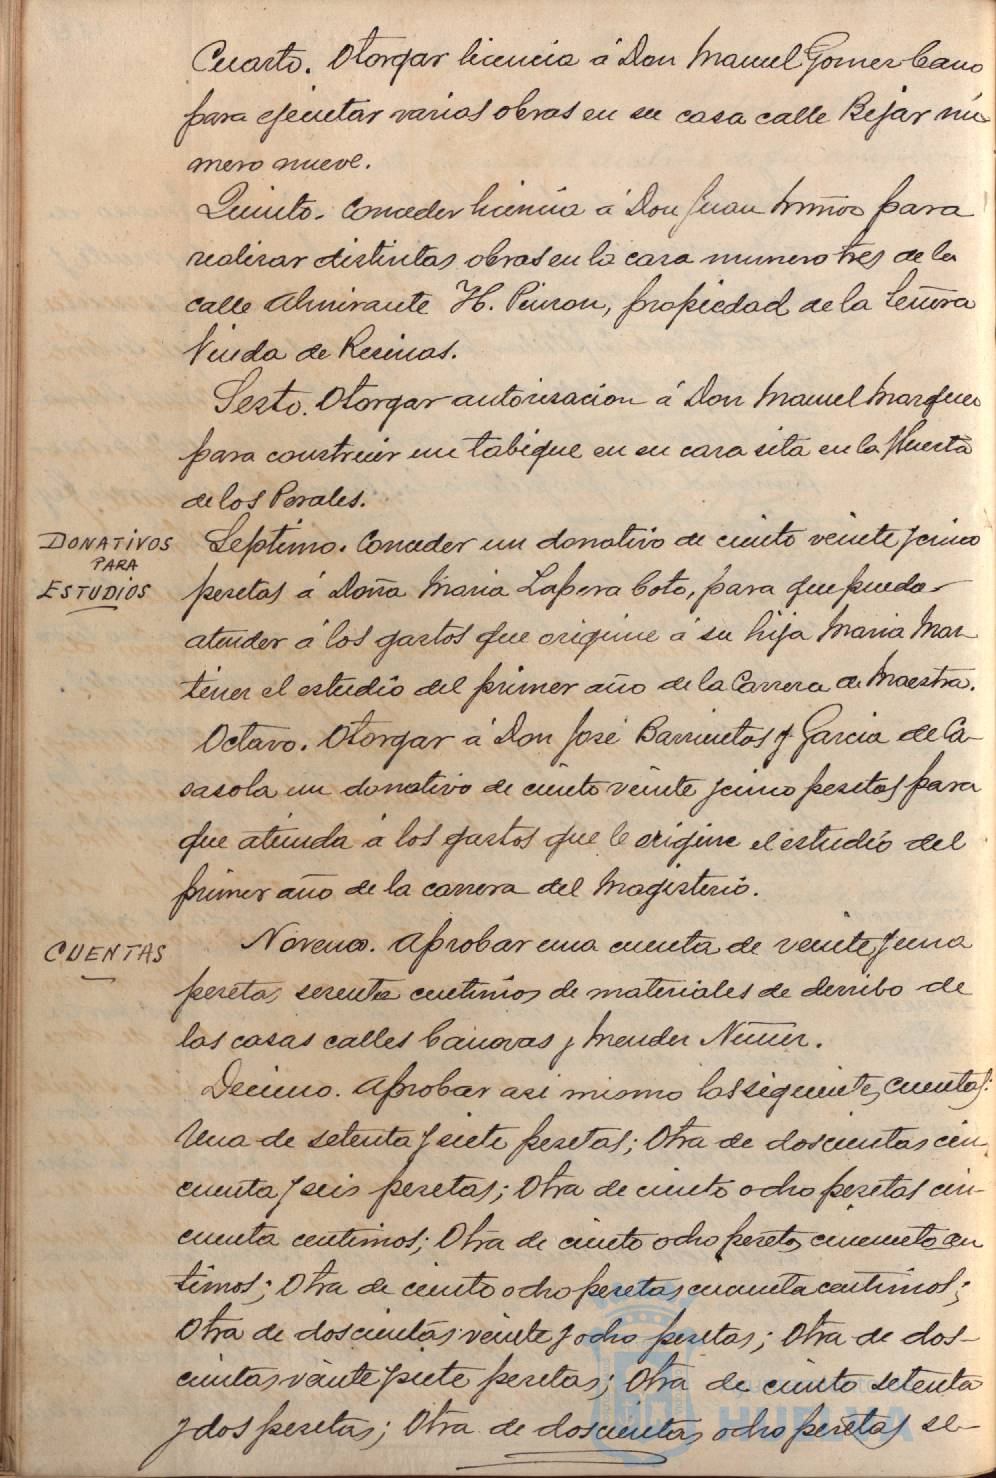 Cuarto. Otorgar licencia á Don Manuel Gomez Cano
para ejecutar varias obras en su casa calle Bejar nú-
mero nueve.
Quinto. Conceder licencia á Don Juan para
realizar distintas obras en la casa numero tres de la
calle Almirante H. Pinzon, propiedad de la Señora
Viuda de Resinas.
Sexto. Otorgar autorizacion á Don Manuel Marquez
para construir un tabique en su casa sita en la Huerta
de los Perales.
DONATIVOS
PARA
ESTUDIOS
Septimo. Conceder un donativo de ciento veinte y cinco
pesetas á Doña Maria Lapera Coto, para que pueda
atender á los gastos que origine á su hija Maria Mar
tinez el estudio del primer año de la Carrera de Maestra.
Octavo. Otorgar á Don José Barrientos y Garcia de Ca-
sasola un donativo de ciento veinte y cinco pesetas para
que atienda á los gastos que le origine el estudio del
primer año de la carrera del Magisterio.
CUENTAS
Noveno. Aprobar una cuenta de veinte y una
pesetas sesenta centimos de materiales de derribo de
las casas calles Canovas y Mendez Nuñez.
Decimo. Aprobar asi mismo las siguientes cuentas:
Una de setenta y siete pesetas; Otra de doscientas cin-
cuenta y seis pesetas; Otra de ciento ocho pesetas cin-
cuenta centimos; Otra de ciento ocho pesetas cincuenta cen
timos; Otra de ciento ocho pesetas cincuenta centimos;
Otra de doscientas veinte y ocho pesetas; Otra de dos-
cientas veinte y siete pesetas; Otra de ciento setenta
y dos pesetas; Otra de doscientas ocho pesetas se-
HUELVA